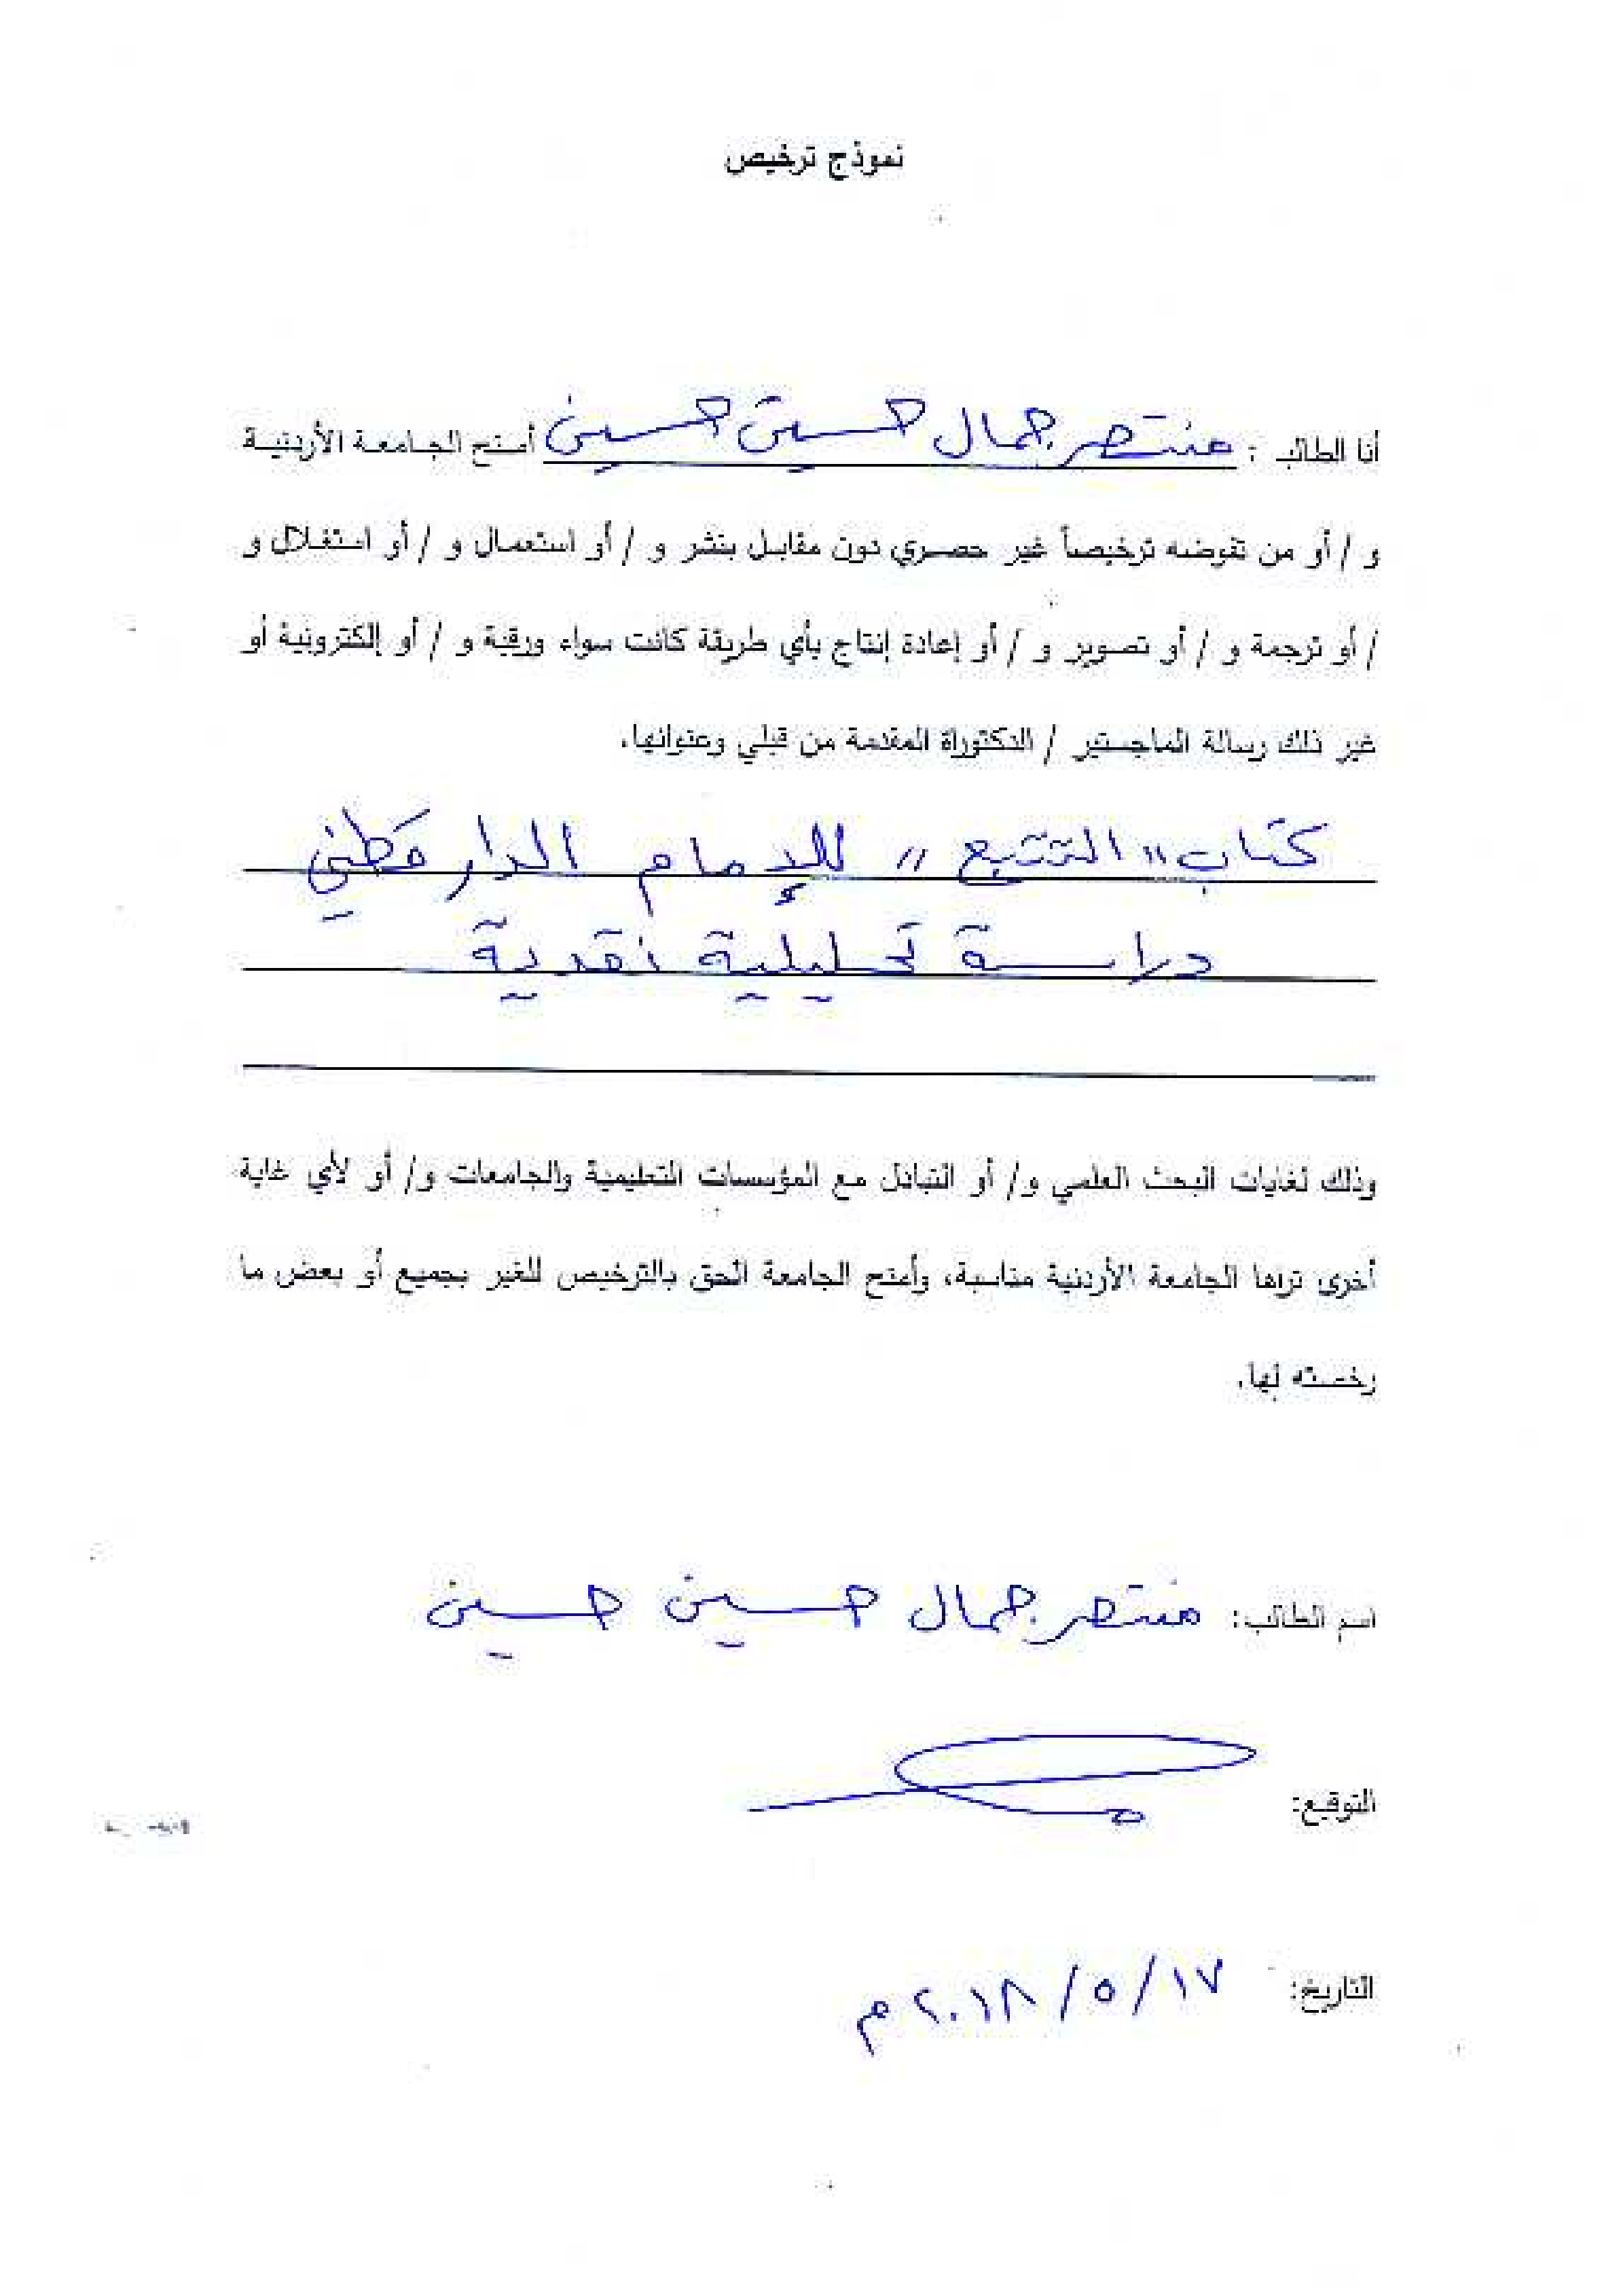 نموذج ترخيص
أنا الطالب : منتصر جمال حسين حسين أمنح الجامعة الأردنية
و / أو من تفوضه ترخيصاً غير حصري دون مقابل بنشر و / أو استعمال و / أو استغلال و
/ أو ترجمة و / أو تصوير و / أو إعادة إنتاج بأي طريقة كانت سواء ورقية و / أو إلكترونية أو
غير ذلك رسالة الماجستير / الدكتوراة المقدمة من قبلي وعنوانها.
كتاب "التتبع" للإمام الدارقطني
دراسة تحليلية نقدية
وذلك لغايات البحث العلمي و/ أو التبادل مع المؤسسات التعليمية والجامعات و/ أو لأي غاية
أخرى تراها الجامعة الأردنية مناسبة، وأمنح الجامعة الحق بالترخيص للغير بجميع أو بعض ما
رخصته لها.
اسم الطالب: منتصر جمال حسين حسين
التوقيع:
التاريخ: ١٧/ ٥/ ٢٠١٨ م